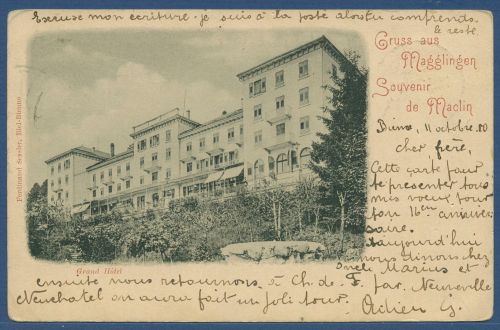 Excuse mon écriture. je suis à la poste alors tu comprends.
le reste.
Gruss aus
Magglingen
Souvenir
de Maclin
Ferdinand, Biel-Bienne
Grand Hôtel
11 octobre
cher frère,
Cette carte pour
te présenter tous
mes voeux pour
ton 16en anniver
saire.
aujourd'hui
nous dinons chez
Marius et
ensuite nous retournons à Ch. de F. par Neuveville
Neuchatel on aura fait un joli tour.